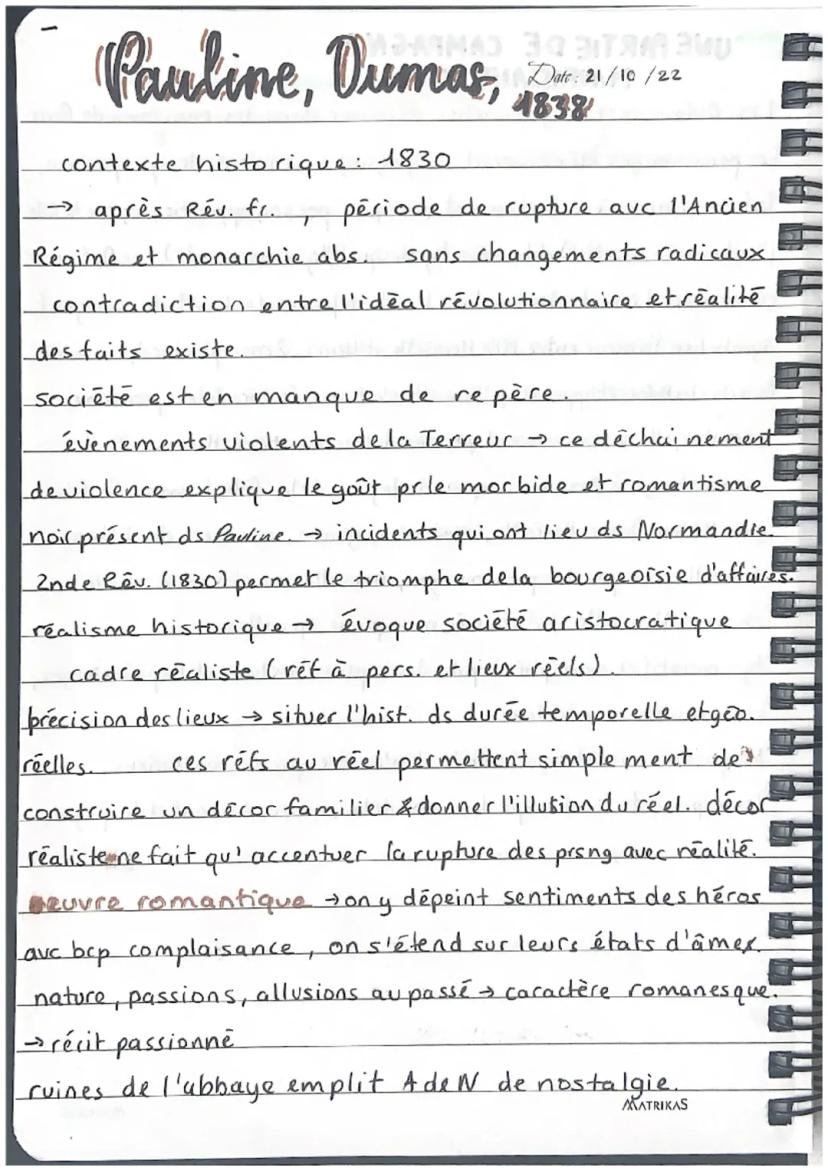 Pauline, Dumas, Date: 21/10/22
1838
contexte historique: 1830
→ après Rév. fr. , période de rupture avc l'Ancien
Régime et monarchie abs. sans changements radicaux
contradiction entre l'idéal révolutionnaire et réalité
des faits existe.
société est en manque de repère.
évènements violents de la Terreur → ce déchainement
de violence explique le goût pr le morbide et romantisme
noir présent ds Pauline. → incidents qui ont lieu ds Normandie.
2nde Rév. (1830) permet le triomphe de la bourgeoisie d'affaires.
réalisme historique → évoque société aristocratique
cadre réaliste (réf à pers. et lieux réels).
précision des lieux → situer l'hist. ds durée temporelle et géo.
réelles. ces réfs au réel permettent simplement de
construire un décor familier & donner l'illusion du réel. décor
réaliste ne fait qu'accentuer la rupture des prsng avec réalité.
oeuvre romantique → on y dépeint sentiments des héros
avc bcp complaisance, on s'étend sur leurs états d'âmes.
nature, passions, allusions au passé → caractère romanesque.
→ récit passionné
ruines de l'abbaye emplit A de N de nostalgie.
MATRIKAS